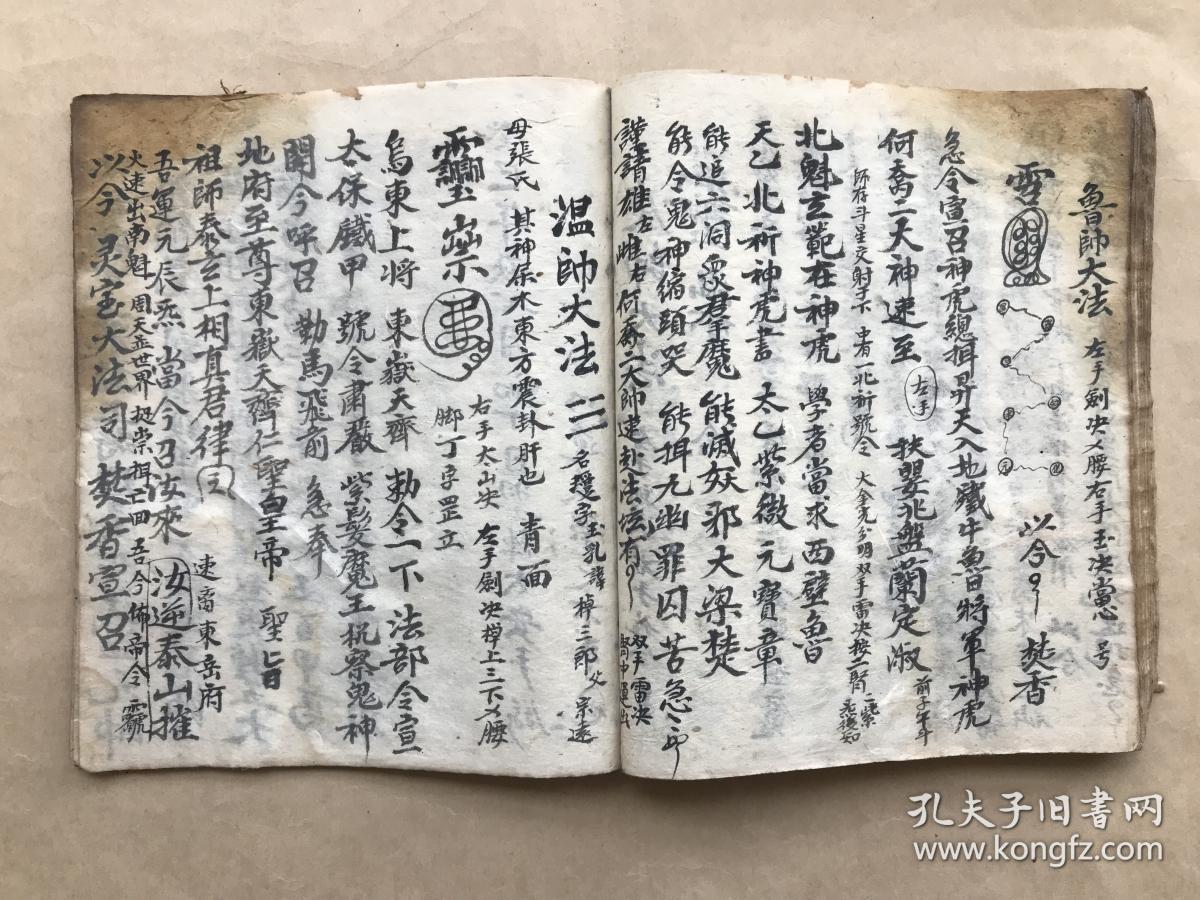 魯帥大法 左手劍决乂腰右手玉决當心 号
雪 以令 焚香
急令宣召神虎總捉昇天入地鐵牛魯日將軍神虎
何喬二天神速至 左手 扶婴兆盤蘭定淑
師存斗星交射于下 中有一北祈號令 双手雷决按二腎
北魁玄範在神虎 學者當求西壁魯
天乙北祈神虎書 太乙紫微元寶章
能追六洞眾群魔 能滅妖邪大梁焚
能令鬼神縮頭哭 能捉九幽罪囚苦 急
謹請雄左雌右何喬二大帥速赴法坛有 双手雷决
温帥大法 名瓊字玉乳諱
母張氏 其神保木東方震卦肝也 青面
靈 右手太山决 左手劍决 上三下乂腰
脚丁字罡立
烏東上将 東嶽天齊 勅令一下 法部令宣
太保鐵甲 號令肅嚴 紫髮魔王 執察鬼神
聞今呼召 勒馬飛前 急奉
地府至尊東嶽天齊仁聖皇帝 聖旨
祖師泰玄上相真君律 速离東岳府
吾運元辰炁 當今召汝來 汝逆泰山摧
火速出南魁 周天並世界 吾今佈帝令
以今 灵宝大法司 焚香宣召
孔夫子旧书网
www.kongfz.com